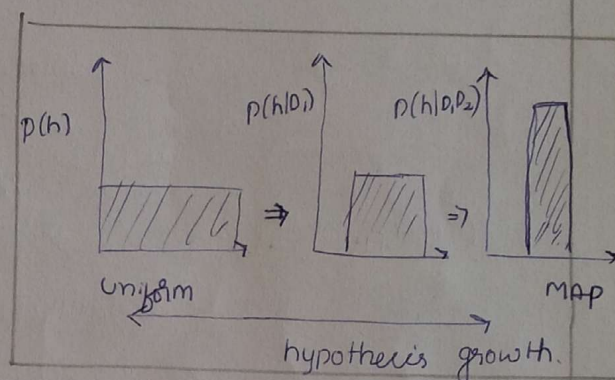 p(h)
p(h|D₁)
p(h|D₁D₂)
⇒
⇒
uniform
MAP
hypothesis growth.